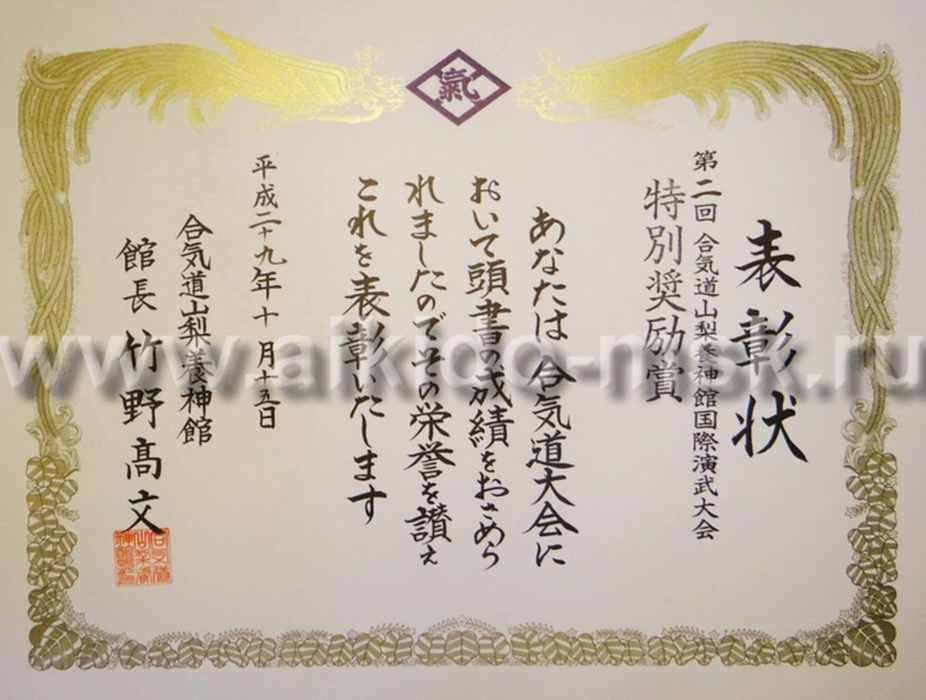 氣
表彰状
第二回 合気道山梨養神館国際演武大会
特別奨励賞
あなたは合気道大会に
おいて頭書の成績をおさめら
れましたのでその栄誉を讃え
これを表彰いたします
平成二十九年十月十五日
合気道山梨養神館
館長 竹野高文
www.aikido-nsk.ru